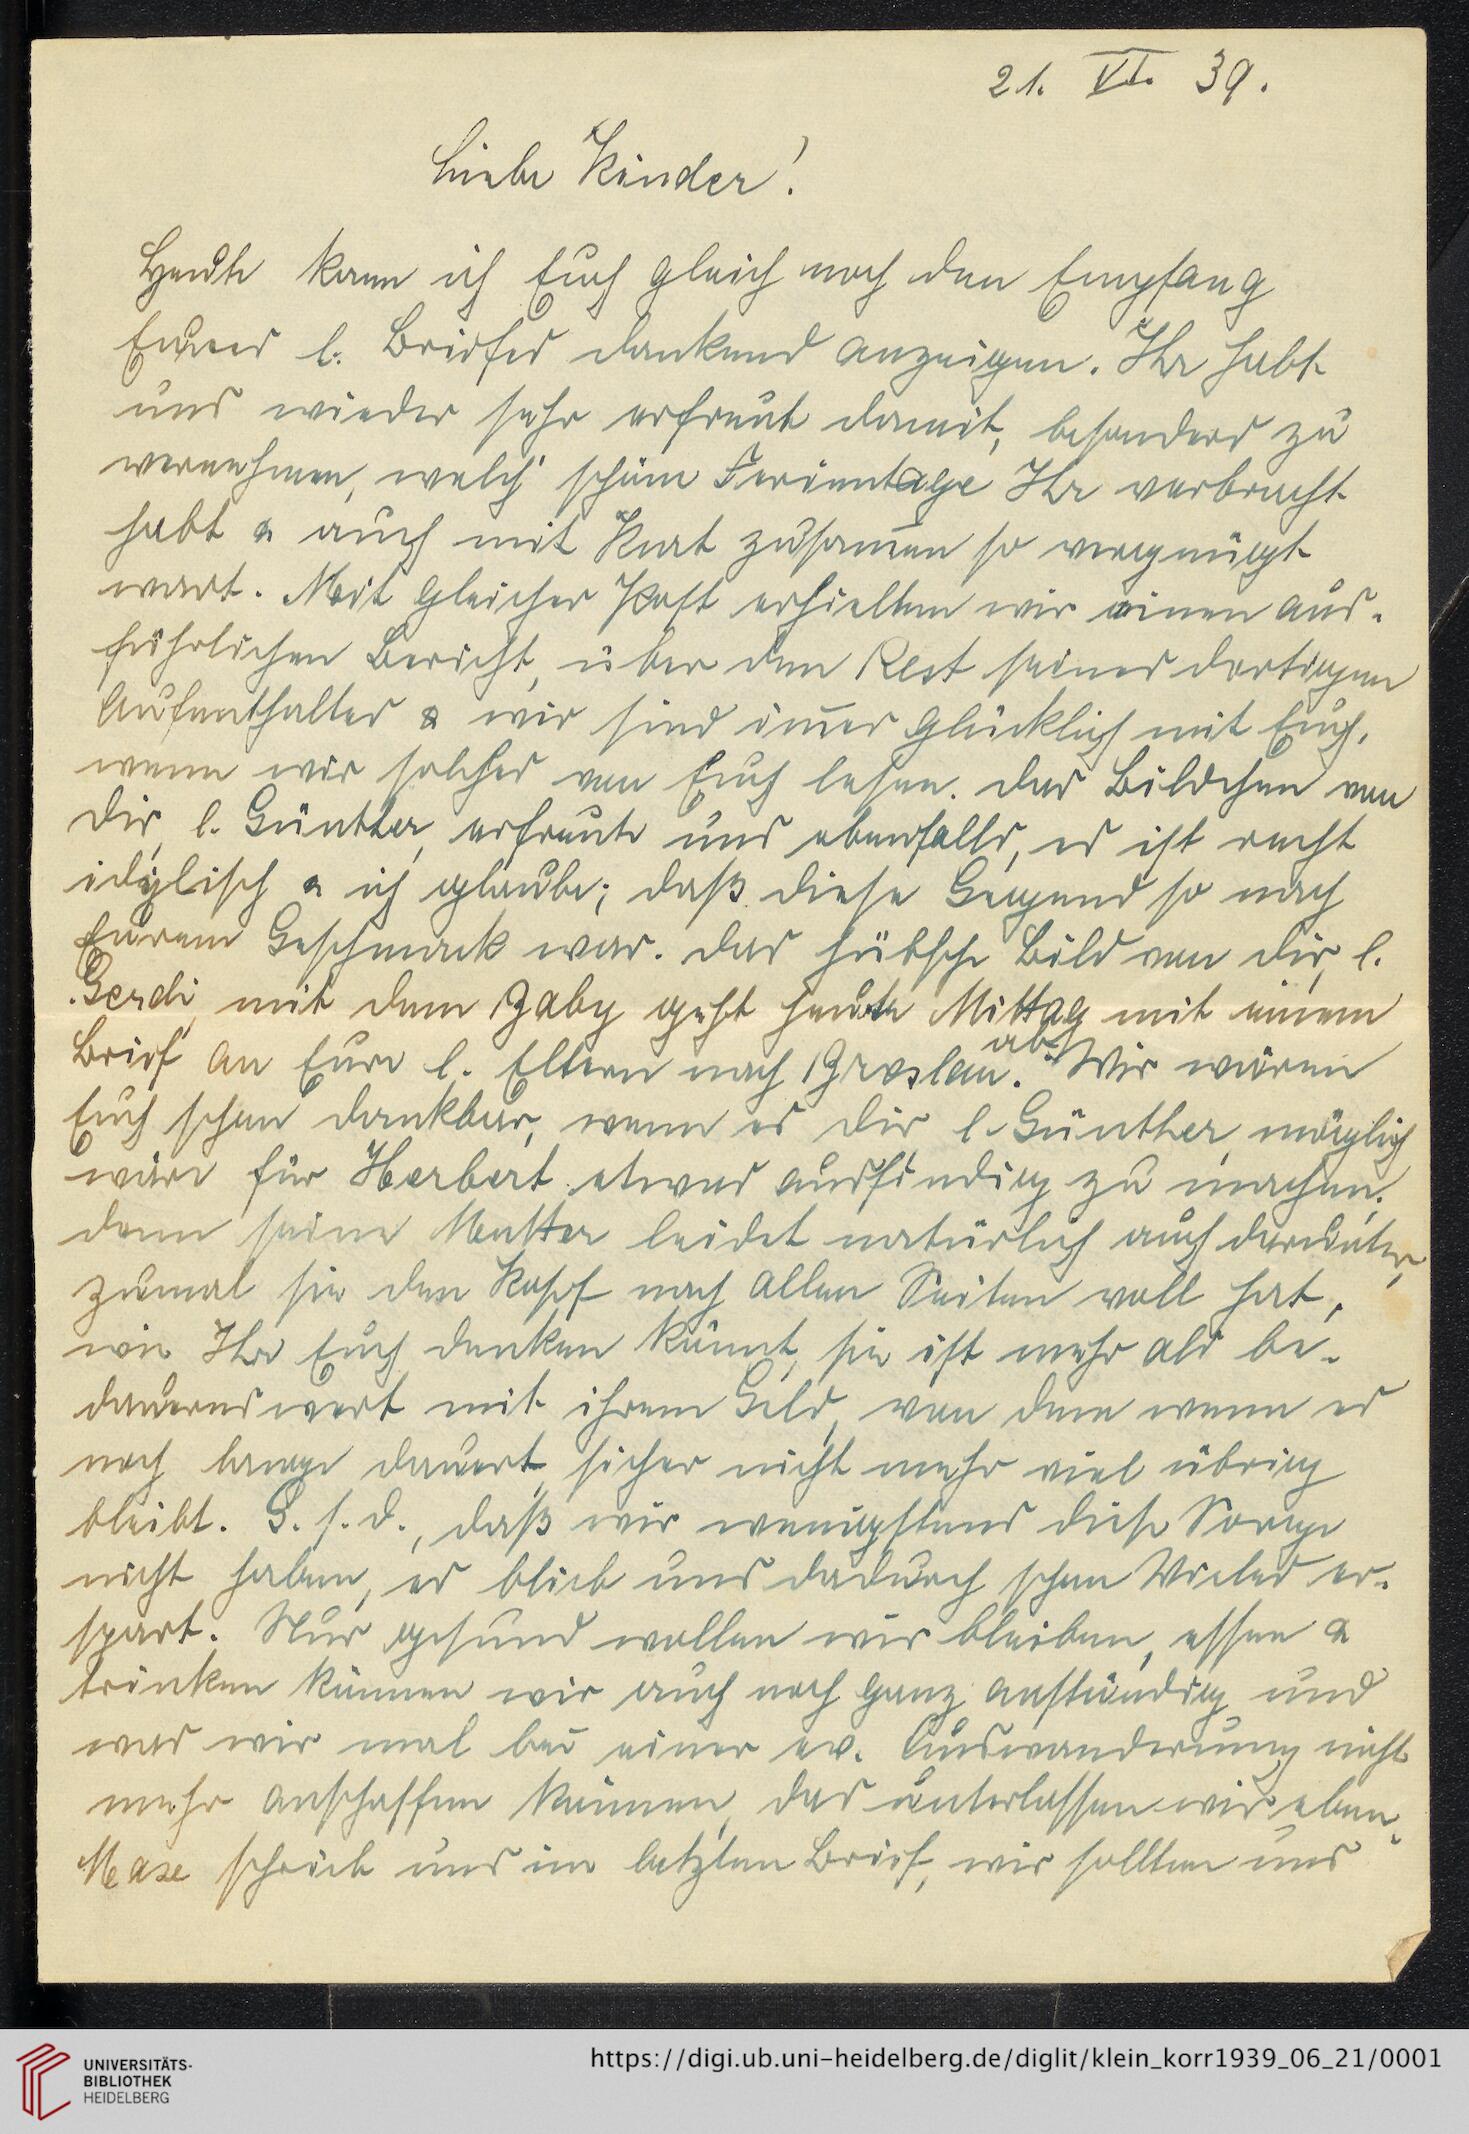 21. VI. 39.
Liebe Kinder!
Heute kann ich Euch gleich noch den Empfang
Eures l. Briefes dankend anzeigen. Ihr habt
uns wieder sehr erfreut damit, besonders zu
vernehmen, welch' schöne Ferientage Ihr verbracht
habt & auch mit Kurt zusam̅en so vergnügt
wart. Mit gleicher Post erhielten wir einen aus-
führlichen Bericht, über den Rest seines dortigen
Aufenthaltes & wir sind im̅er glücklich mit Euch,
wenn wir solches von Euch lesen. Das Bildchen von
Dir, l. Günther, erfreute uns ebenfalls, es ist recht
idylisch & ich glaube, daß diese Gegend so nach
Eurem Geschmack war. Das hübsche Bild von Dir, l.
Gerdi, mit dem Baby geht heute Mittag mit einem
Brief an Eure l. Eltern nach Breslau ab. Wir wären
Euch schon dankbar, wenn es Dir l. Günther, möglich
wäre für Herbert etwas ausfindig zu machen,
denn seine Mutter leidet natürlich auch darunter,
zumal sie den Kopf nach allen Seiten voll hat,
wie Ihr Euch denken könnt, sie ist mehr als be-
dauernswert mit ihrem Geld, von dem wenn es
noch lange dauert, sicher nicht mehr viel übrig
bleibt. G. s. d., daß wir wenigstens diese Sorge
nicht haben, es blieb uns dadurch schon Vieles er-
spart. Nur gesund wollen wir bleiben, essen &
trinken können wir auch noch ganz anständig und
was wir mal bei einer ev. Auswanderung nicht
mehr anschaffen können, das unterlassen wir eben.
Maxe schrieb uns im letzten Brief, wir sollten uns
UNIVERSITÄTS-
BIBLIOTHEK
HEIDELBERG
https://digi.ub.uni-heidelberg.de/diglit/klein_korr1939_06_21/0001